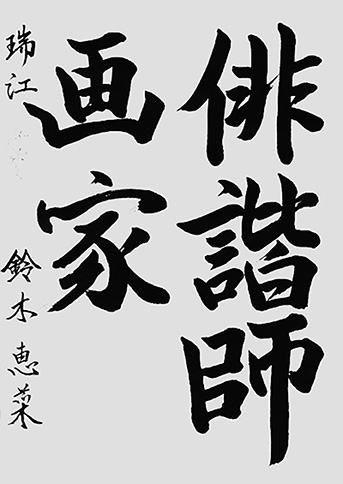 俳諧師
画家
瑞江
鈴木恵菜